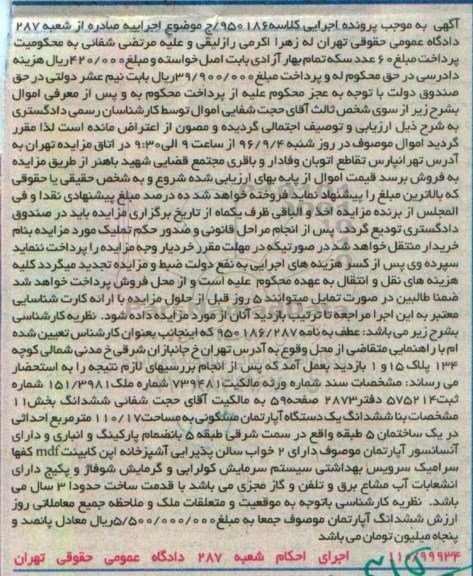 آگهی به موجب پرونده اجرایی کلاسه ۹۵۰۱۸۶/ج موضوع اجراییه صادره از شعبه ۲۸۷
دادگاه عمومی حقوقی تهران له زهرا اکرمی رازلیقی و علیه مرتضی شفائی به محکومیت
پرداخت مبلغ ۶۰ عدد سکه تمام بهار آزادی بابت اصل خواسته و مبلغ ۴۲۰/۰۰۰ ریال هزینه
دادرسی در حق محکوم له و پرداخت مبلغ ۳۹/۹۰۰/۰۰۰ ریال بابت نیم عشر دولتی در حق
صندوق دولت با توجه به عجز محکوم علیه از پرداخت محکوم به و پس از معرفی اموال
بشرح زیر از سوی شخص ثالث آقای حجت شفایی اموال توسط کارشناسان رسمی دادگستری
به شرح ذیل ارزیابی و توصیف اجتمالی گردیده و مصون از اعتراض مانده است لذا مقرر
گردید اموال موصوف در روز شنبه ۹۶/۹/۴ از ساعت ۹ الی ۹:۳۰ در اتاق مزایده تهران به
آدرس تهرانپارس تقاطع اتوبان وفادار و باقری مجتمع قضایی شهید باهنر از طریق مزایده
به فروش برسد قیمت اموال از پایه بهای ارزیابی شده شروع و به شخص حقیقی یا حقوقی
که بالاترین مبلغ را پیشنهاد نماید فروخته خواهد شد ده درصد مبلغ پیشنهادی نقدا و فی
المجلس از برنده مزایده اخذ و الباقی ظرف یکماه از تاریخ برگزاری مزایده باید در صندوق
دادگستری تودیع گردد. پس از انجام مراحل قانونی و صدور حکم تملیک مورد مزایده بنام
خریدار منتقل خواهد شد در صورتیکه در مهلت مقرر خریدار وجه مزایده را پرداخت ننماید
سپرده وی پس از کسر هزینه های اجرایی به نفع دولت ضبط و مزایده تجدید میگردد کلیه
هزینه های نقل و انتقال به عهده محکوم علیه است و از محل فروش پرداخت خواهد شد
ضمنا طالبین در صورت تمایل میتوانند ۵ روز قبل از حلول مزایده با ارائه کارت شناسایی
معتبر به این اجرا مراجعه تا ترتیب بازدید آنان از مورد مزایده داده شود. نظریه کارشناسی
بشرح زیر می باشد: عطف به نامه ۹۵۰۱۸۶/۲۸۷ که اینجانب بعنوان کارشناس تعیین شده
ام با راهنمایی متقاضی از محل وقوع به آدرس تهران خ جانبازان شرقی خ مدنی شمالی کوچه
۱۳۴ پلاک ۱۵ و ۱ بازدید بعمل آمد که پس از انجام بررسیهای لازم نتیجه را به استحضار
می رساند: مشخصات سند شماره ورقه مالکیت ۷۳۹۴۸۱ شماره ملک ۱۵۱/۳۹۸۱ شماره
ثبت ۵۷۵۲۱۴ دفتر ۲۸۷۳ صفحه ۵۹ به مالکیت آقای حجت شفائی ششدانگ بخش ۱۱
مشخصات بنا ششدانگ یک دستگاه آپارتمان مسکونی به مساحت ۱۱۰/۱۷ مترمربع احداثی
در یک ساختمان ۵ طبقه واقع در سمت شرقی طبقه ۵ بانضمام پارکینگ و انباری و دارای
آسانسور آپارتمان موصوف دارای ۲ خواب سالن پذیرایی آشپزخانه اپن کابینت mdf کفها
سرامیک سرویس بهداشتی سیستم سرمایش کولرابی و گرمایش شوفاژ و پکیج دارای
انشعابات آب مشاع برق و تلفن و گاز مجزی می باشد با قدمت ساخت حدودا ۳ سال می
باشد. نظریه کارشناسی باتوجه به موقعیت و متعلقات ملک و ملاحظه جمیع معاملاتی روز
ارزش ششدانگ آپارتمان موصوف جمعا به مبلغ ۵/۵۰۰/۰۰۰/۰۰۰ ریال معادل پانصد و
پنجاه میلیون تومان می باشد
اجرای احکام شعبه ۲۸۷ دادگاه عمومی حقوقی تهران